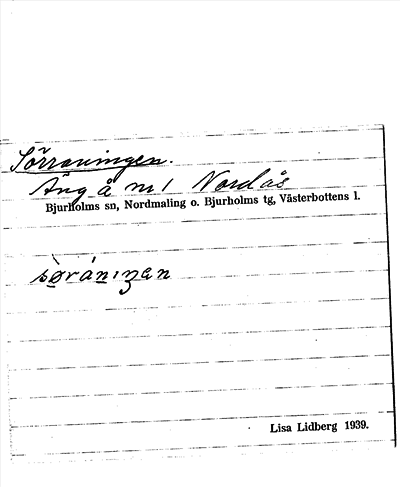 Sörraningen.
Äng å m 1 Nordås
Bjurholms sn, Nordmaling o. Bjurholms tg, Västerbottens l.
Lisa Lidberg 1939.